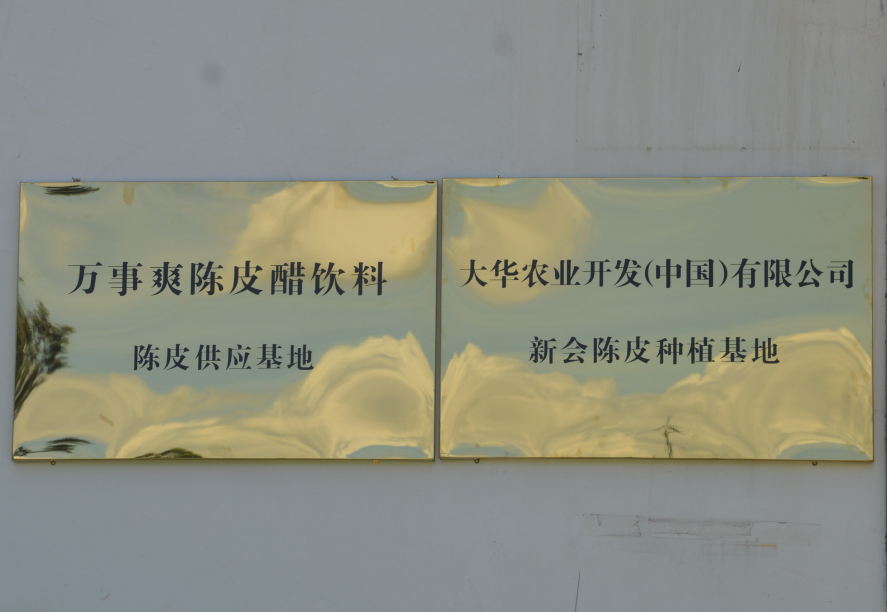 万事爽陈皮醋饮料
陈皮供应基地
大华农业开发(中国)有限公司
新会陈皮种植基地